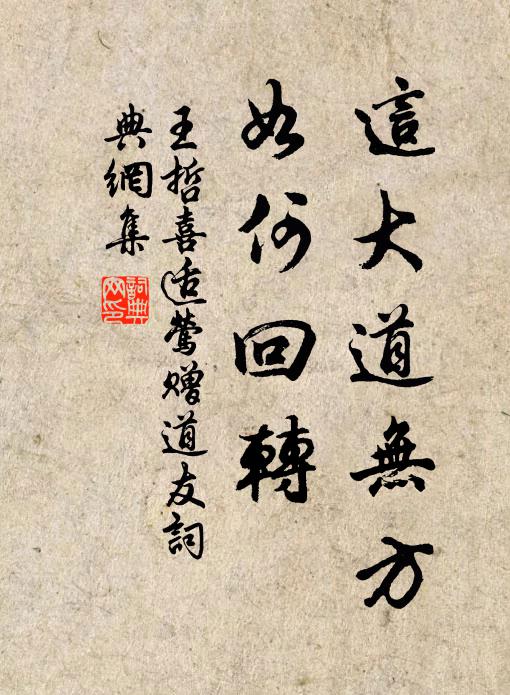 這大道無方
如何回轉
王哲喜适鶯贈道友詞
典網集
詞典
网印